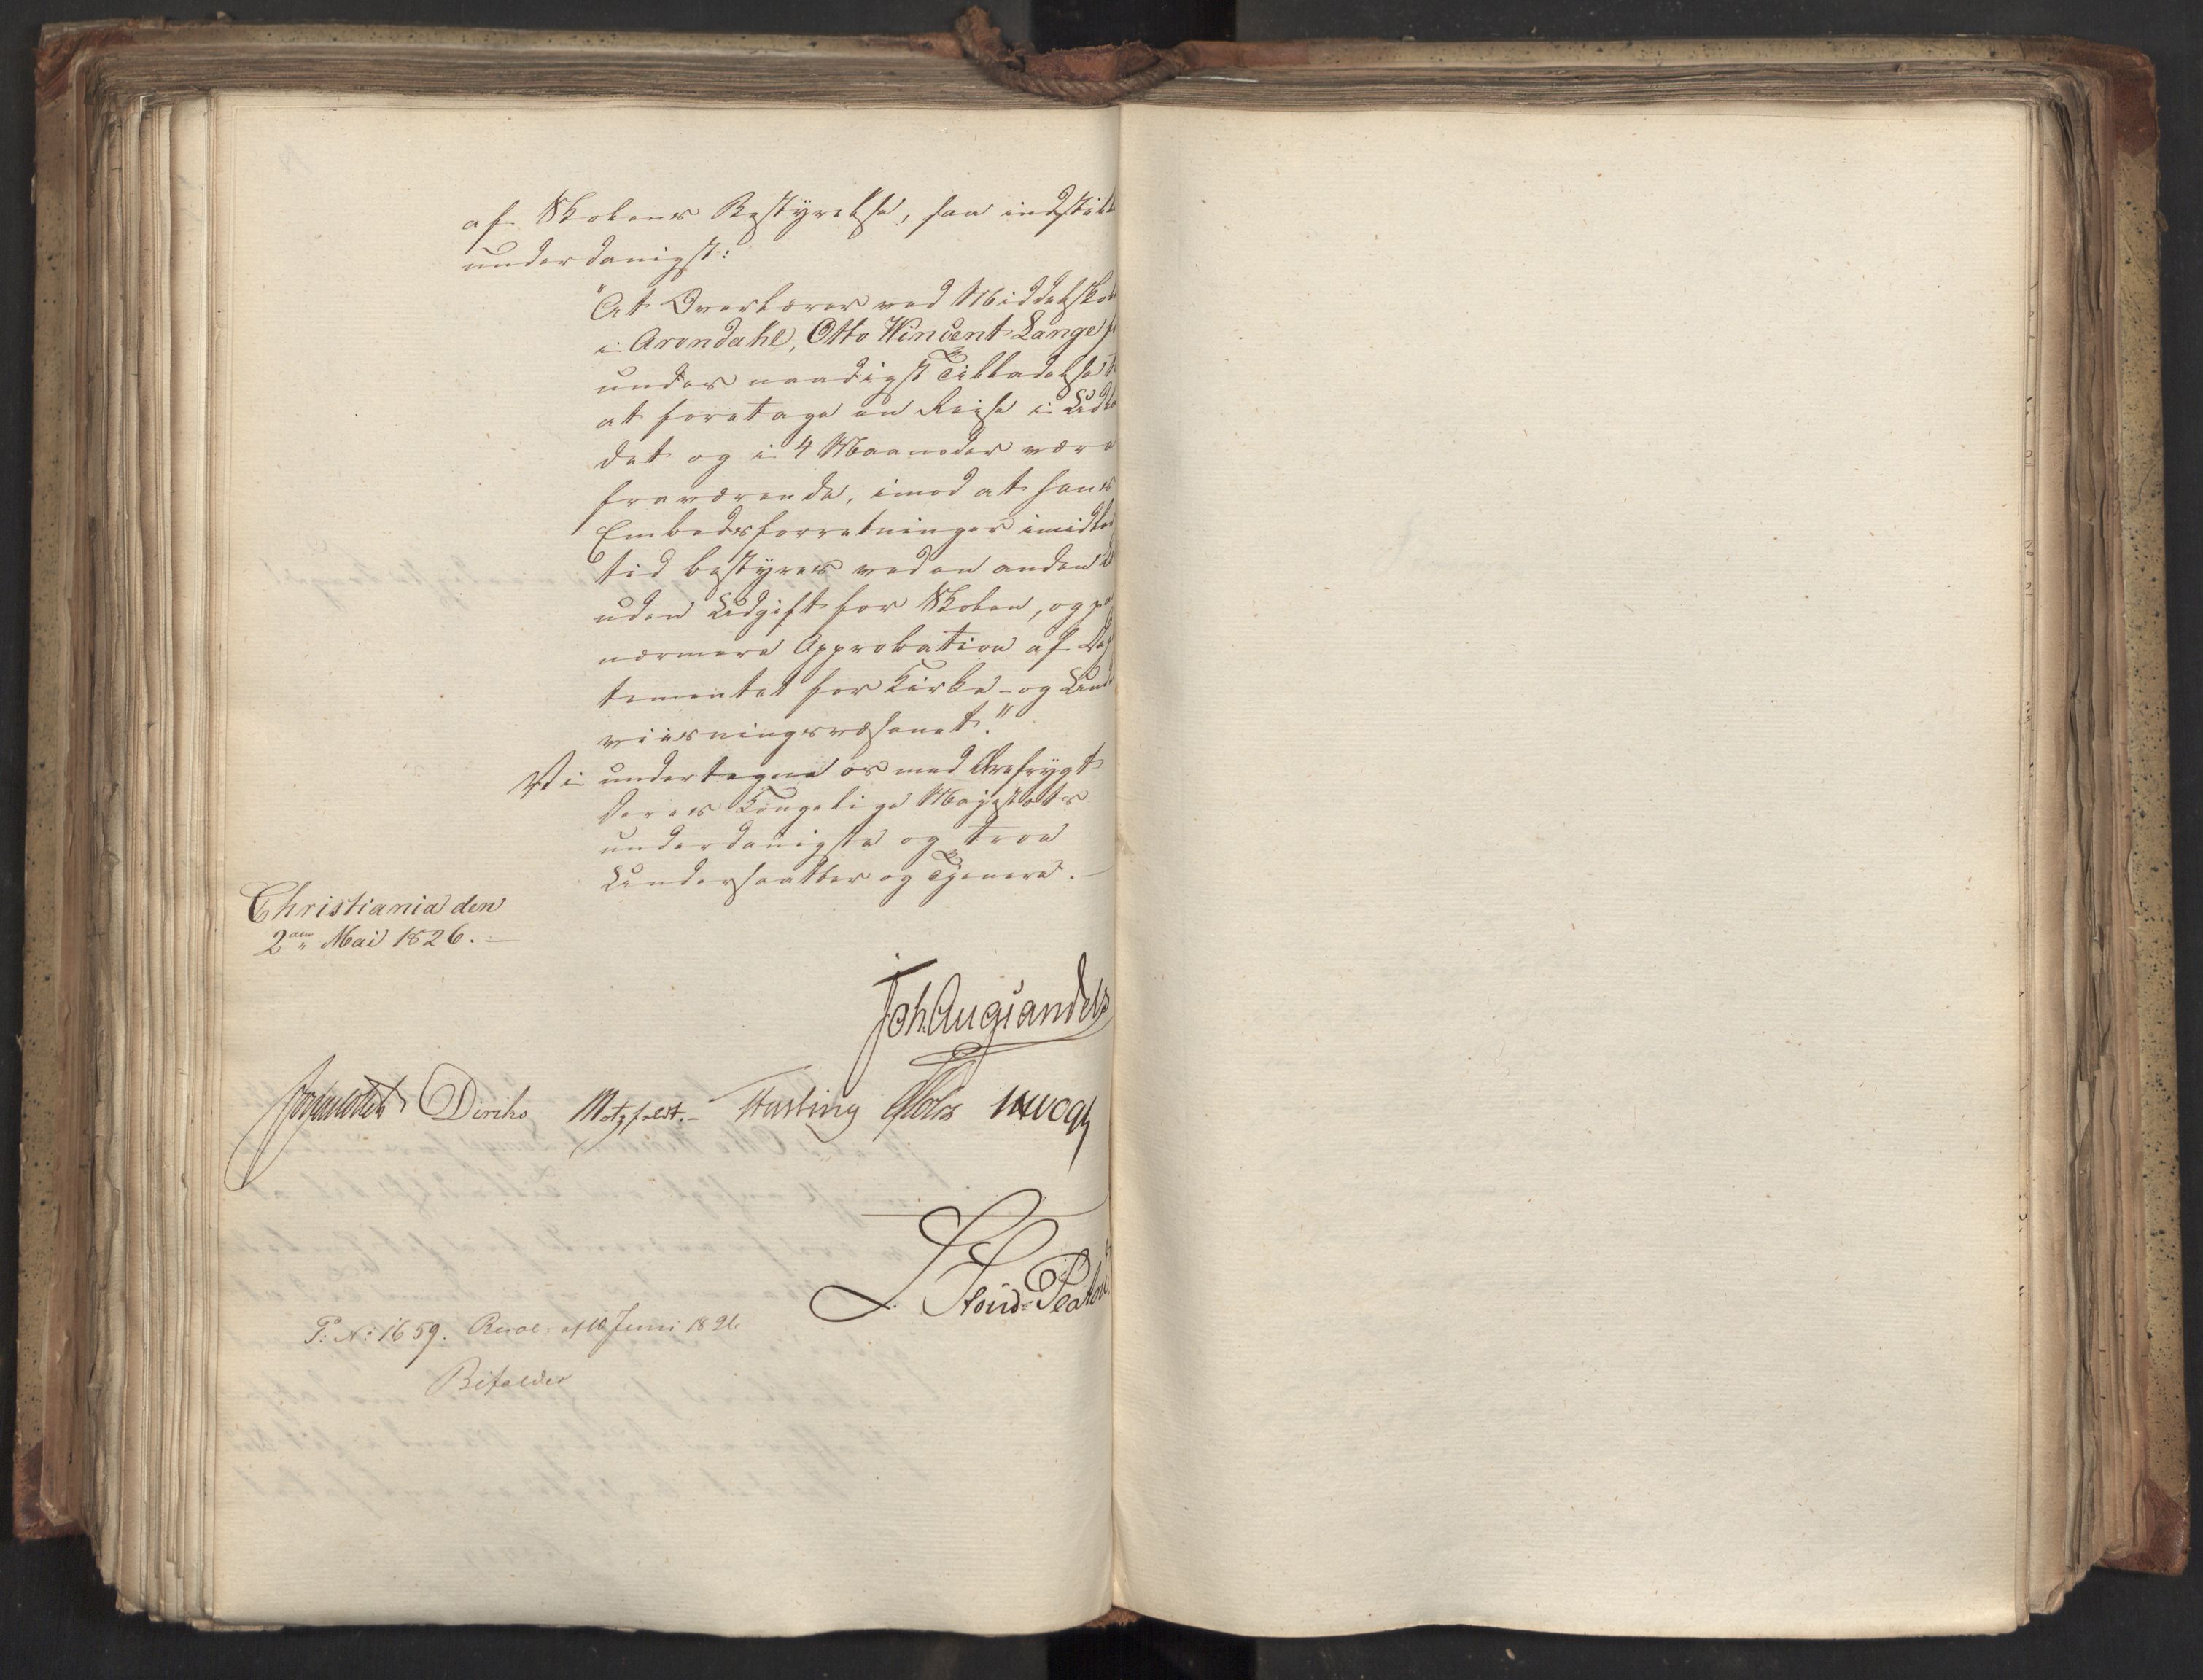 af Skolens Bestyrelse, saa indstill
underdanigst:
"At Overlærer ved Middelskol
i Arendahl, Otto Wincent Lange, f
under naadigst Tilladelse t
at foretage en Reise i Udla
det og i 4 Maaneder være
fraværende, imod at hans
Embedsforretninger imidler
tid bestyres ved en anden
uden Udgift for Skolen, og paa
nærmere Approbation af Dep
tementet for Kirke- og Unde
viisningsvæsenet."
Vi undertegne os med Ærefrygt
Deres Kongelige Majestæts
underdanigste og troe
Undersaatter og Tjenere.
Christiania den
2den Mai 1826.
Joh. Aug. Sandels
Diriks Motzfeldt. Fasting Holst
L. Stoud-Platou
P: N: 1659. Resol: af 10 Juni 1826
Bifaldes